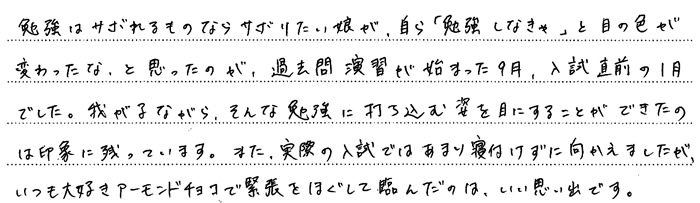 勉強はサボれるものならサボりたい娘が、自ら「勉強しなきゃ」と目の色が
変わったな、と思ったのが、過去問演習が始まった9月、入試直前の1月
でした。我が子ながら、そんな勉強に打ち込む姿を目にすることができたの
は印象に残っています。また、実際の入試ではあまり寝付けずに向かえましたが、
いつも大好きアーモンドチョコで緊張をほぐして臨んだのは、いい思い出です。